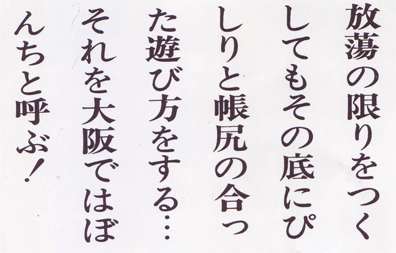 放蕩の限りをつく
してもその底にぴ
しりと帳尻の合っ
た遊び方をする…
それを大阪ではぼ
んちと呼ぶ！